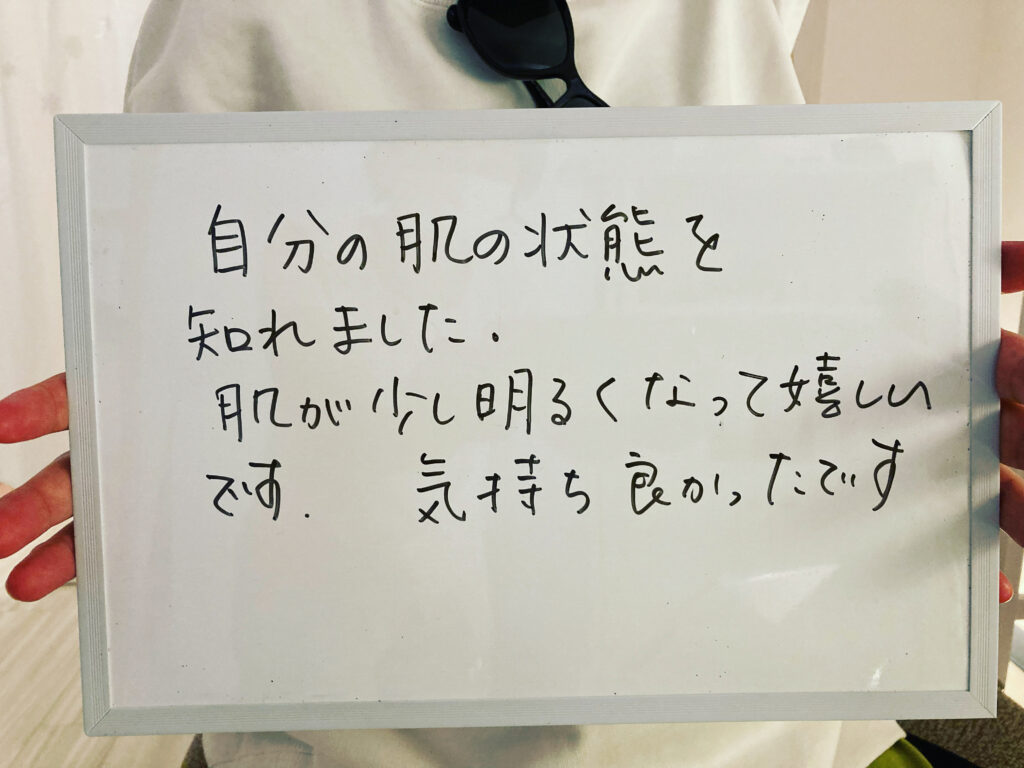 自分の肌の状態を
知れました.
肌が少し明るくなって嬉しい
です. 気持ち良かったです